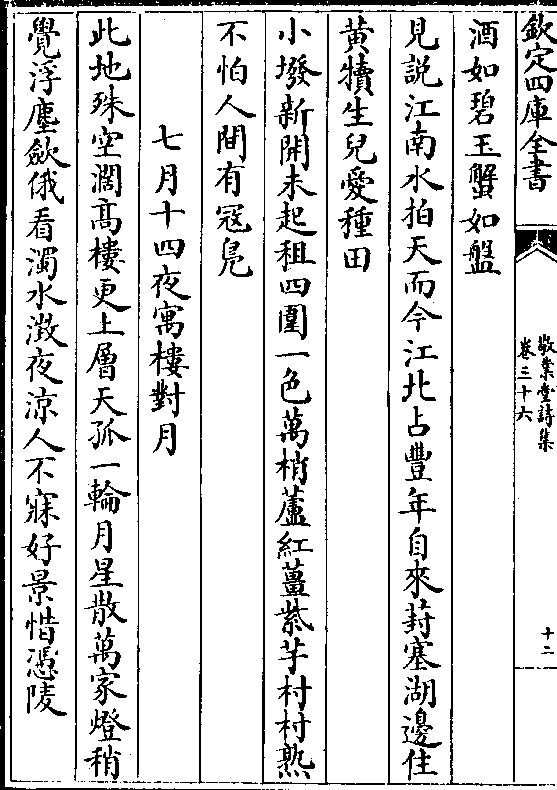 欽定四庫全書
敬業堂詩集
卷三十六
十二
酒如碧玉蟹如盤
見説江南水拍天而今江北占豐年自來葑塞湖邊住
黃犢生兒愛種田
小墢新開未起租四圍一色萬梢蘆紅薑紫芋村村熟
不怕人間有冦鳬
七月十四夜寓樓對月
此地殊空濶髙樓更上層天孤一輪月星散萬家燈稍
覺浮塵斂俄看濁水澂夜涼人不寐好景惜憑陵